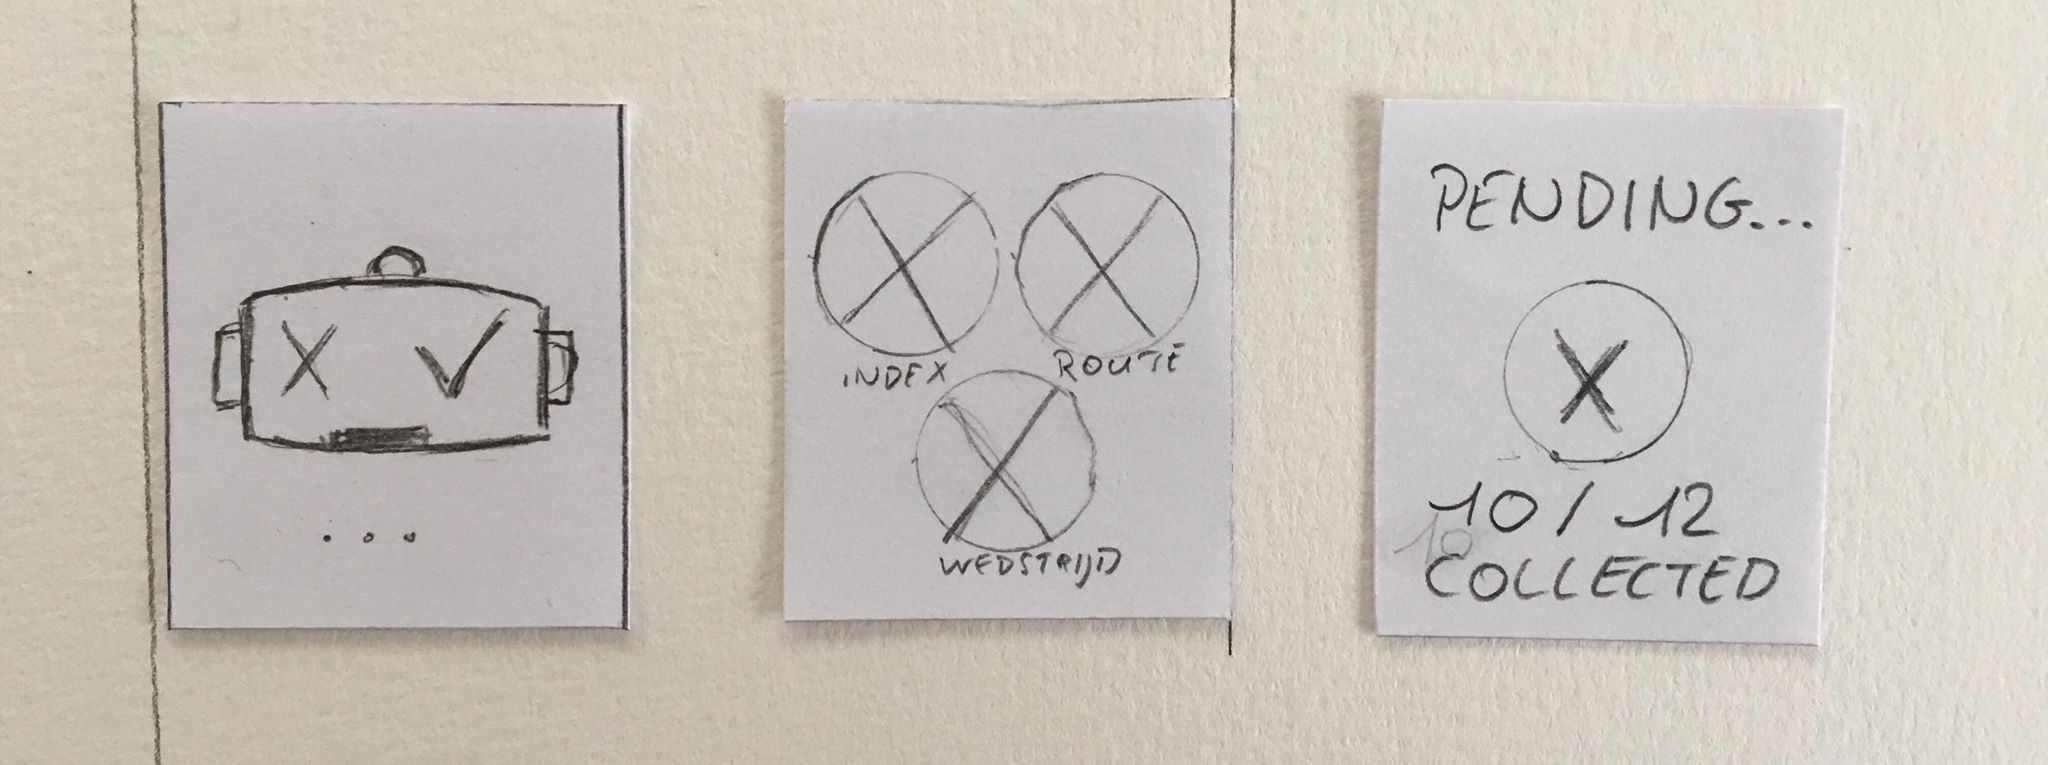 ...
INDEX
ROUTE
WEDSTRIJD
PENDING...
X
10 / 12
COLLECTED